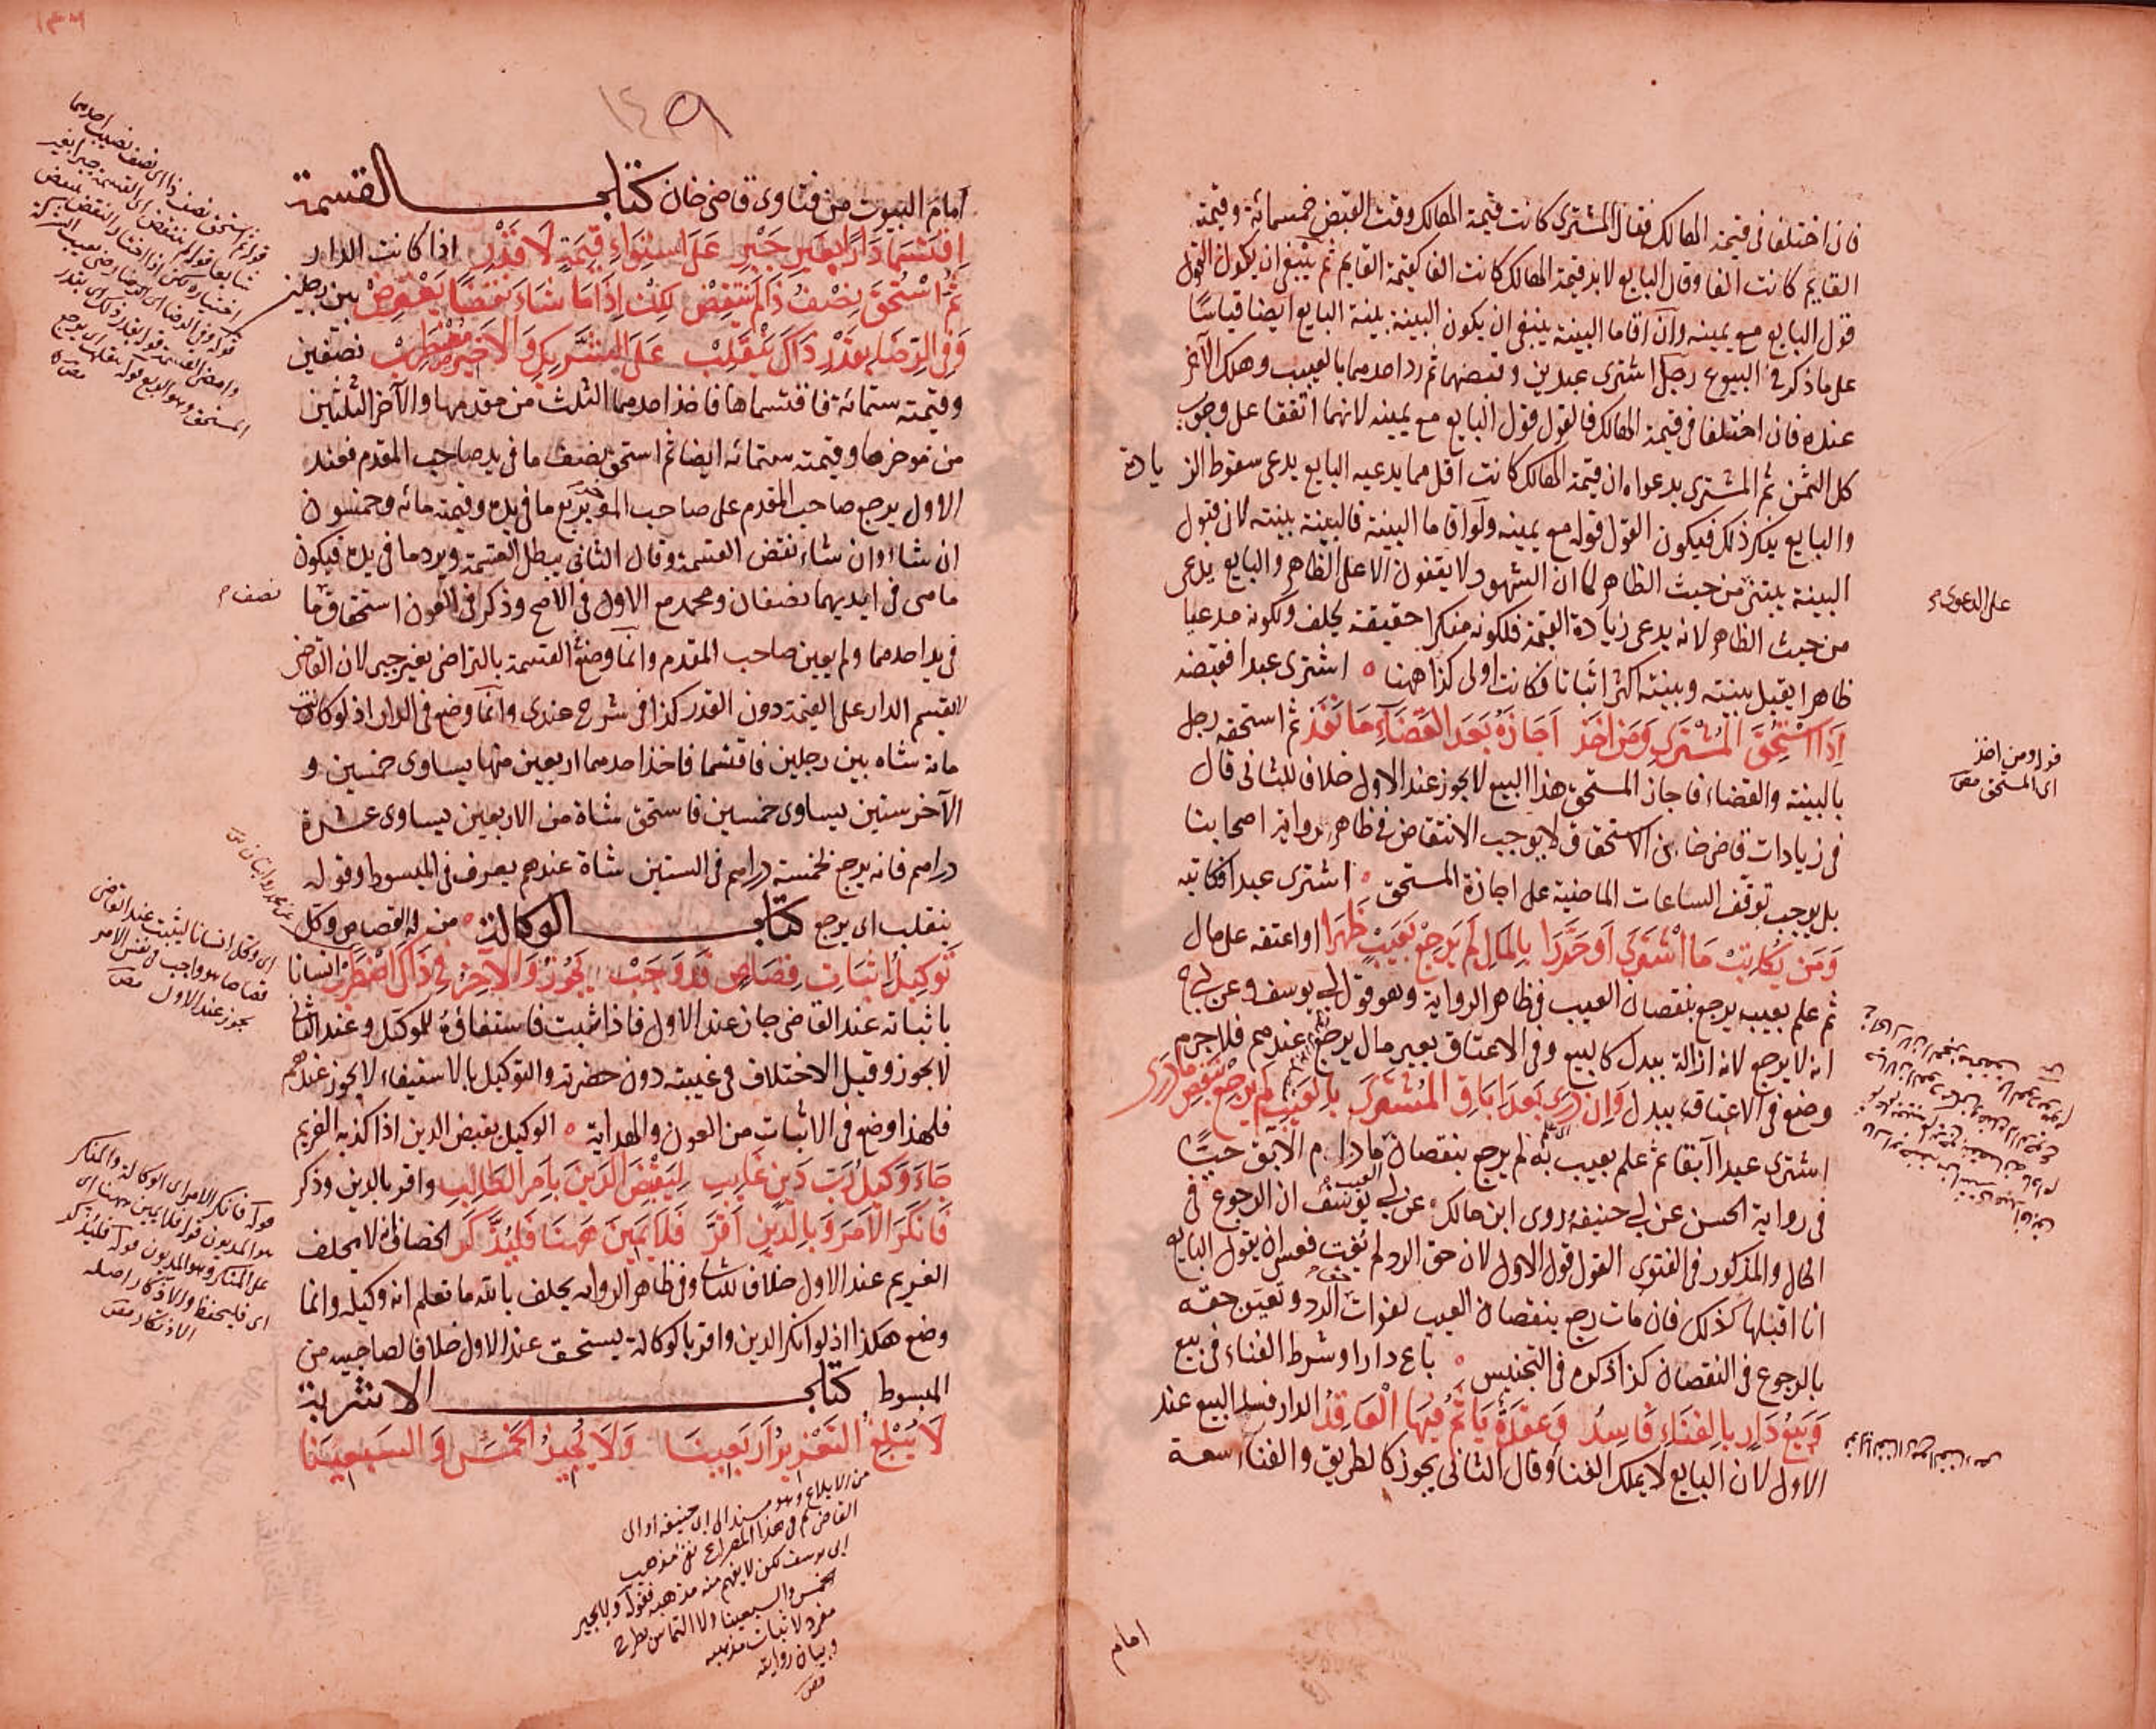 فان اختلفا فى قيمة الهالك فقال المشترى كانت قيمة الهالك وقت القبض خمسمائة وقيمة
القايم كانت الفا وقال البايع لا بل قيمة الهالك كانت الفا كقيمة القايم ثم ينبغى ان يكون القول
قول البايع مع يمينه وان اقاما البينة ينبغى ان يكون البينة بينة البايع ايضا قياسًا
على ما ذكر فى البيوع رجل اشترى عبدين وقبضهما ثم رد احدهما بالعيب وهلك الآخر
عنده فان اختلفا فى قيمة الهالك فالقول قول البايع مع يمينه لانهما اتفقا على وجوب
كل الثمن ثم المشترى بدعواه ان قيمة الهالك كانت اقل مما يدعيه البايع يدعى سقوط الزيادة
والبايع ينكر ذلك فيكون القول قوله مع يمينه ولو اقاما البينة فالبينة بينته لان قبول
البينة يبتنى من حيث الظاهر لما ان الشهود لا يقفون الا على الظاهر والبايع يدعى
من حيث الظاهر لانه يدعى زيادة القيمة فلكونه منكرا حقيقة يحلف ولكونه مدعيا
ظاهرا يقبل بينته وبينته اكثر اثباتا فكانت اولى كذا ههنا ه اشترى عبدا فقبضه
اِذَا اسْتُحِقَّ الْمُشْتَرَى وَمَن اَخَذ اَجَازَهُ بَعَد القَضَاءِ مَا نَفَذ ثم استحقه رجل
بالبينة والقضاء فاجاز المستحق هذا البيع لا يجوز عند الاول خلافا للثانى قال
فى زيادات قاضى خان الاستحقاق لا يوجب الانتقاض فى ظاهر رواية اصحابنا
بل يوجب توقف الساعات الماضية على اجازة المستحق ه اشترى عبدا فكاتبه
وَمَن يُكَاتِبْ مَا اشْتَرَى اَو حَرَّرَا بِالْمَالِ لَم يَرجِعْ بِعَيبٍ ظَهَرا او اعتقه على مال
ثم علم بعيب يرجع بنقصان العيب فى ظاهر الرواية وهو قول ابى يوسف وعن ابى ح
انه لا يرجع لانه ازالة ببدل كالبيع وفى الاعتاق بغير مال يرجع عندهم فلا جرم
وضع فى الاعتاق ببدل وَاِن دَرَى بَعَدَ اِبَاقِ الْمُشتَرَى بِالْعَيْبِ لَم يَرجِعْ بِنَقصٍ مَا دَرَى
اشترى عبدا آبقا ثم علم بعيب به لم يرجع بنقصان ما دام الآبق حيًّا
فى رواية الحسن عن ابى حنيفة روى ابن مالك عن ابى يوسف ان الرجوع فى
الحال والمذكور فى الفتوى القول قول الاول لان حق الرد لم يفت فعسى ان يقول البايع
انا اقبلها كذلك فان مات رجع بنقصان العيب لفوات الرد وتعين حقه
بالرجوع فى النقصان كذا ذكره فى التجنيس ه باع دارا وشرط الفناء فى بيع
وَبَيْعُ دَارٍ بِالفِنَاءِ فَاسِدُ وَعقَدَهُ يَأثَمُ فِيهَا الْعَاقِدُ الدار فسد البيع عند
الاول لان البايع لا يملك الفنا وقال الثانى يجوز كالطريق والفناء سعة
على الدعوى
قوله ومن اخذ
اى المستحق مص
امام
١٤٩
امام البيوت من فتاوى قاضى خان كتاب القسمة
اِقتَسَمَا دَارًا بِغَيرِ جَبْرِ عَلَى اسْتِوَاءِ قِيمَةٍ لَا قَدْرِ اذا كانت الدار
ثُمَّ اسْتُحِقَّ نِصْفُ ذَا لَم يَنْتَقِضْ لكِنْ اِذَا مَا شَاءَ نَقضًا يَنْتَقِضْ بين رجلين
وَفِى الرِّضَا بِقَدْرِ ذَاكَ يَنْقَلِبْ عَلَى الشَّرِيكِ وَالاَخِيرُ مُضْطَرِبْ نصفين
وقيمته ستمائة فاقتسماها فاخذ احدهما الثلث من مقدمها والآخر الثلثين
من مؤخرها وقيمته ستمائه ايضا ثم استحق نصف ما فى يد صاحب المقدم فعند
الاول يرجع صاحب المقدم على صاحب المؤخر بربع ما فى يده وقيمته مائه وخمسون
ان شاء وان شاء نقض القسمة وقال الثانى يبطل القسمة ويرد ما فى يده فيكون
ما فى ايديهما نصفان ومحمد مع الاول فى الاصح وذكر فى العون استحقاق ما
نصف
فى يد احدهما ولم يعين صاحب المقدم وانما وضع القسمة بالتراضى بغير جبر لان القاضى
لا يقسم الدار على القيمة دون القدر كذا فى شرح عندى وانما وضع فى الدار اذ لو كانت
مائة شاه بين رجلين فاقتسما فاخذ احدهما اربعين منها يساوى خمسين و
الآخر ستين يساوى خمسين فاستحق شاة من الاربعين يساوى عشرة
دراهم فانه يرجع بخمسة دراهم فى الستين شاة عندهم يعرف فى المبسوط وقوله
ينقلب اى يرجع كتاب الوكالة ه من له القصاص وكل
تَوكِيلُ اِثبَاتِ قِصَاصٍ قَد وَجَبْ يَجُوزُ وَالاَخِيرُ فِى ذَاكَ اضْطَرَبْ انسانا
باثباته عند القاضى جاز عند الاول فاذا ثبت فاستيفاؤه للموكل وعند الثانى
لا يجوز وقيل الاختلاف فى غيبته دون حضرته والتوكيل بالاستيفاء لا يجوز عندهم
فلهذا وضع فى الاثبات من العون والهداية ه الوكيل بقبض الدين اذا كذبه الغريم
جَاءَ وَكِيلُ رَبِّ دَينٍ غَايِبِ لِيَقْبِضَ الدَينَ بِاَمرِ الطَالِبِ واقر بالدين وذكر
فَانكَرَ الاَمرَ وَبِالدينِ اَقَرَّ فَلَا يَمِينَ هَهنَا فَليُدَّكَر الخصاف انه لا يحلف
الغريم عند الاول خلافا للثانى وفى ظاهر الروايه يحلف بالله ما تعلم انه وكيله وانما
وضع هكذا اذ لو انكر الدين واقر بالوكالة يستحق عند الاول خلافا لصاحبيه من
المبسوط كتاب الاشربة
لَا يَبْلُغُ التَعْزِيرُ اَربَعِينَا وَلَا يُجِيزُ الخَمْسَ وَالسَبعِينَا
اى وكل انسانا ليثبت عند القاضى
قصاصا هو واجب فى نفس الامر
يجوز عند الاول مص
قوله فانكر الامر اى الوكالة والمنكر
هو المديون قوله فلا يمين ههنا اى
على المنكر وهو المديون قوله فليدكر
اى فليحفظ والادكار اصله
الاذتكار مص
من الابلاغ وهو مسند الى ابى حنيفة او الى
القاضى ثم فى هذا المصراع نفى مذهب
ابى يوسف لكن لا يفهم منه مذهبه فقوله ولا يجيز
الخمس والسبعينا
مفرد لاثبات مذهبه
وبيان روايته
مص